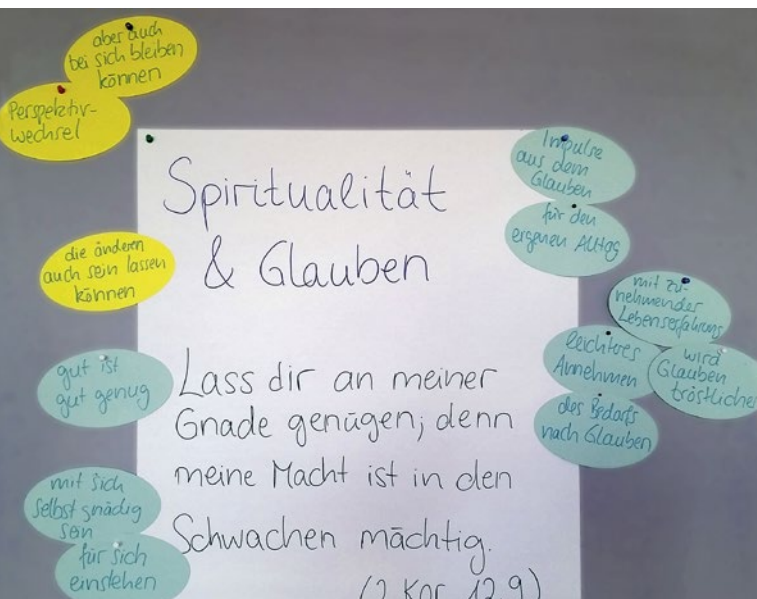 aber auch
bei sich bleiben
können
Perspektiv-
wechsel
die anderen
auch sein lassen
können
gut ist
gut genug
mit sich
selbst gnädig
sein
für sich
einstehen
Spiritualität
& Glauben
Lass dir an meiner
Gnade genügen; denn
meine Macht ist in den
Schwachen mächtig.
(2 Kor 12,9)
Impulse
aus dem
Glauben
für den
eigenen Alltag
mit zu-
nehmender
Lebenserfahrung
wird
Glauben
tröstlicher
leichteres
Annehmen
des Bedarfs
nach Glauben